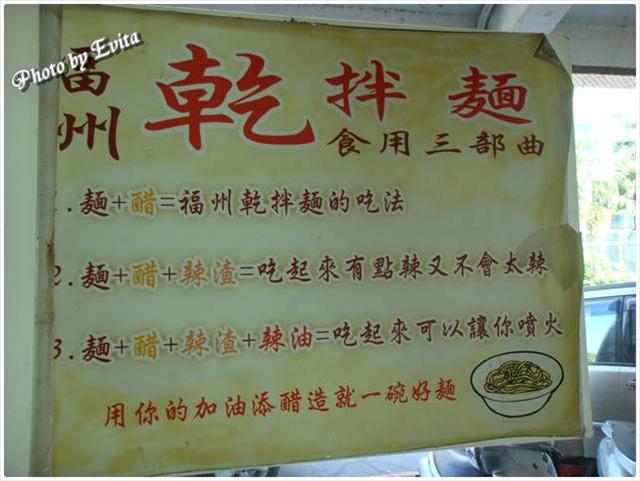 Photo by Evita
福州 乾拌麵
食用三部曲
1.麵+醋=福州乾拌麵的吃法
2.麵+醋+辣渣=吃起來有點辣又不會太辣
3.麵+醋+辣渣+辣油=吃起來可以讓你噴火
用你的加油添醋造就一碗好麵